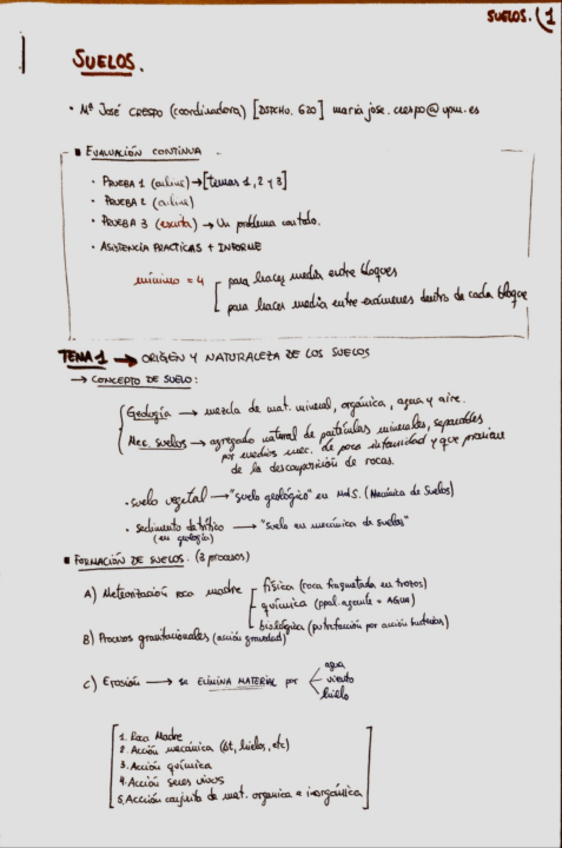 SUELOS. (1
SUELOS.
• Mª José CRESPO (coordinadora) [DSPCHO. 620] maria jose.crespo@upm.es
■ EVALUACIÓN CONTINUA
• PRUEBA 1 (online) → [temas 1, 2 y 3]
• PRUEBA 2 (online)
• PRUEBA 3 (escrita) → Un problema con todo.
• ASISTENCIA PRACTICAS + INFORME
mínimo = 4
para hacer media entre bloques
para hacer media entre exámenes dentro de cada bloque
TEMA 1 → ORIGEN Y NATURALEZA DE LOS SUELOS
→ CONCEPTO DE SUELO:
Geología → mezcla de mat. mineral, orgánica, agua y aire.
Mec. suelos → agregado natural de partículas minerales, separables
por medios mec. de poca intensidad y que proviene
de la descomposición de rocas.
• suelo vegetal → "suelo geológico" en MdS. (Mecánica de Suelos)
• sedimento detrítico → "suelo en mecánica de suelos"
(en geología)
■ FORMACIÓN DE SUELOS. (3 procesos)
A) Meteorización roca madre
física (roca fragmetada en trozos)
química (ppal. agente = AGUA)
biológica (putrefacción por acción bacterias)
B) Procesos gravitacionales (acción gravedad)
C) Erosión → se ELIMINA MATERIAL por
agua
viento
hielo
1. Roca Madre
2. Acción mecánica (Δt, hielos, etc)
3. Acción química
4. Acción seres vivos
5. Acción conjunta de mat. organica e inorgánica